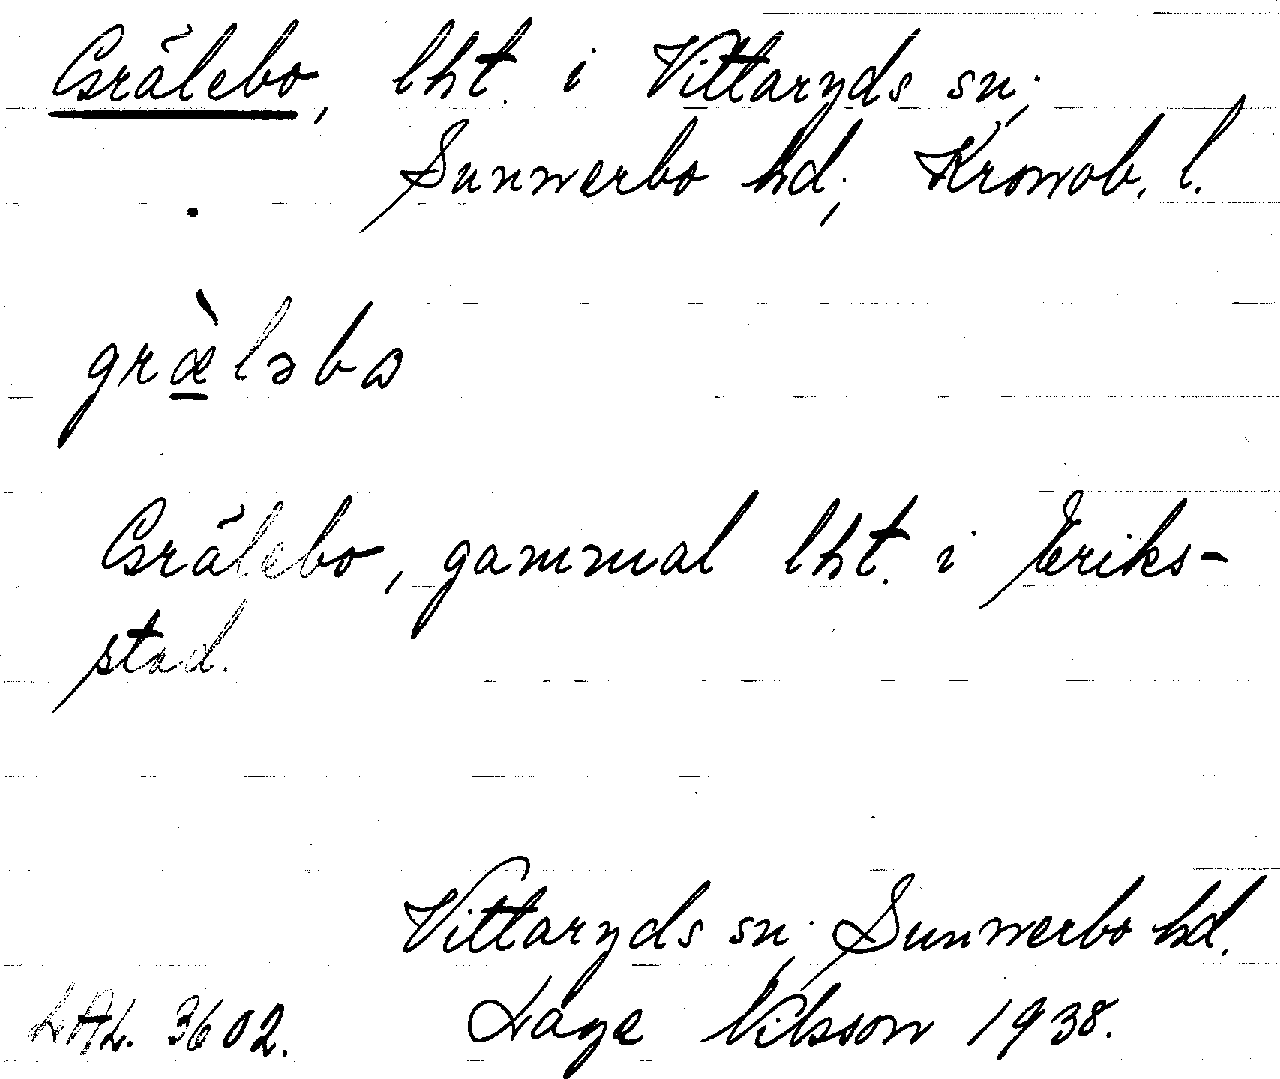 Grälebo, lht. i Vittaryds sn;
Sunnerbo hd; Kronob. l.
græ̀ləbo
Grälebo, gammal lht. i Eriks-
stad.
Vittaryds sn; Sunnerbo hd.
LAL. 3602. Tage Nilsson 1938.